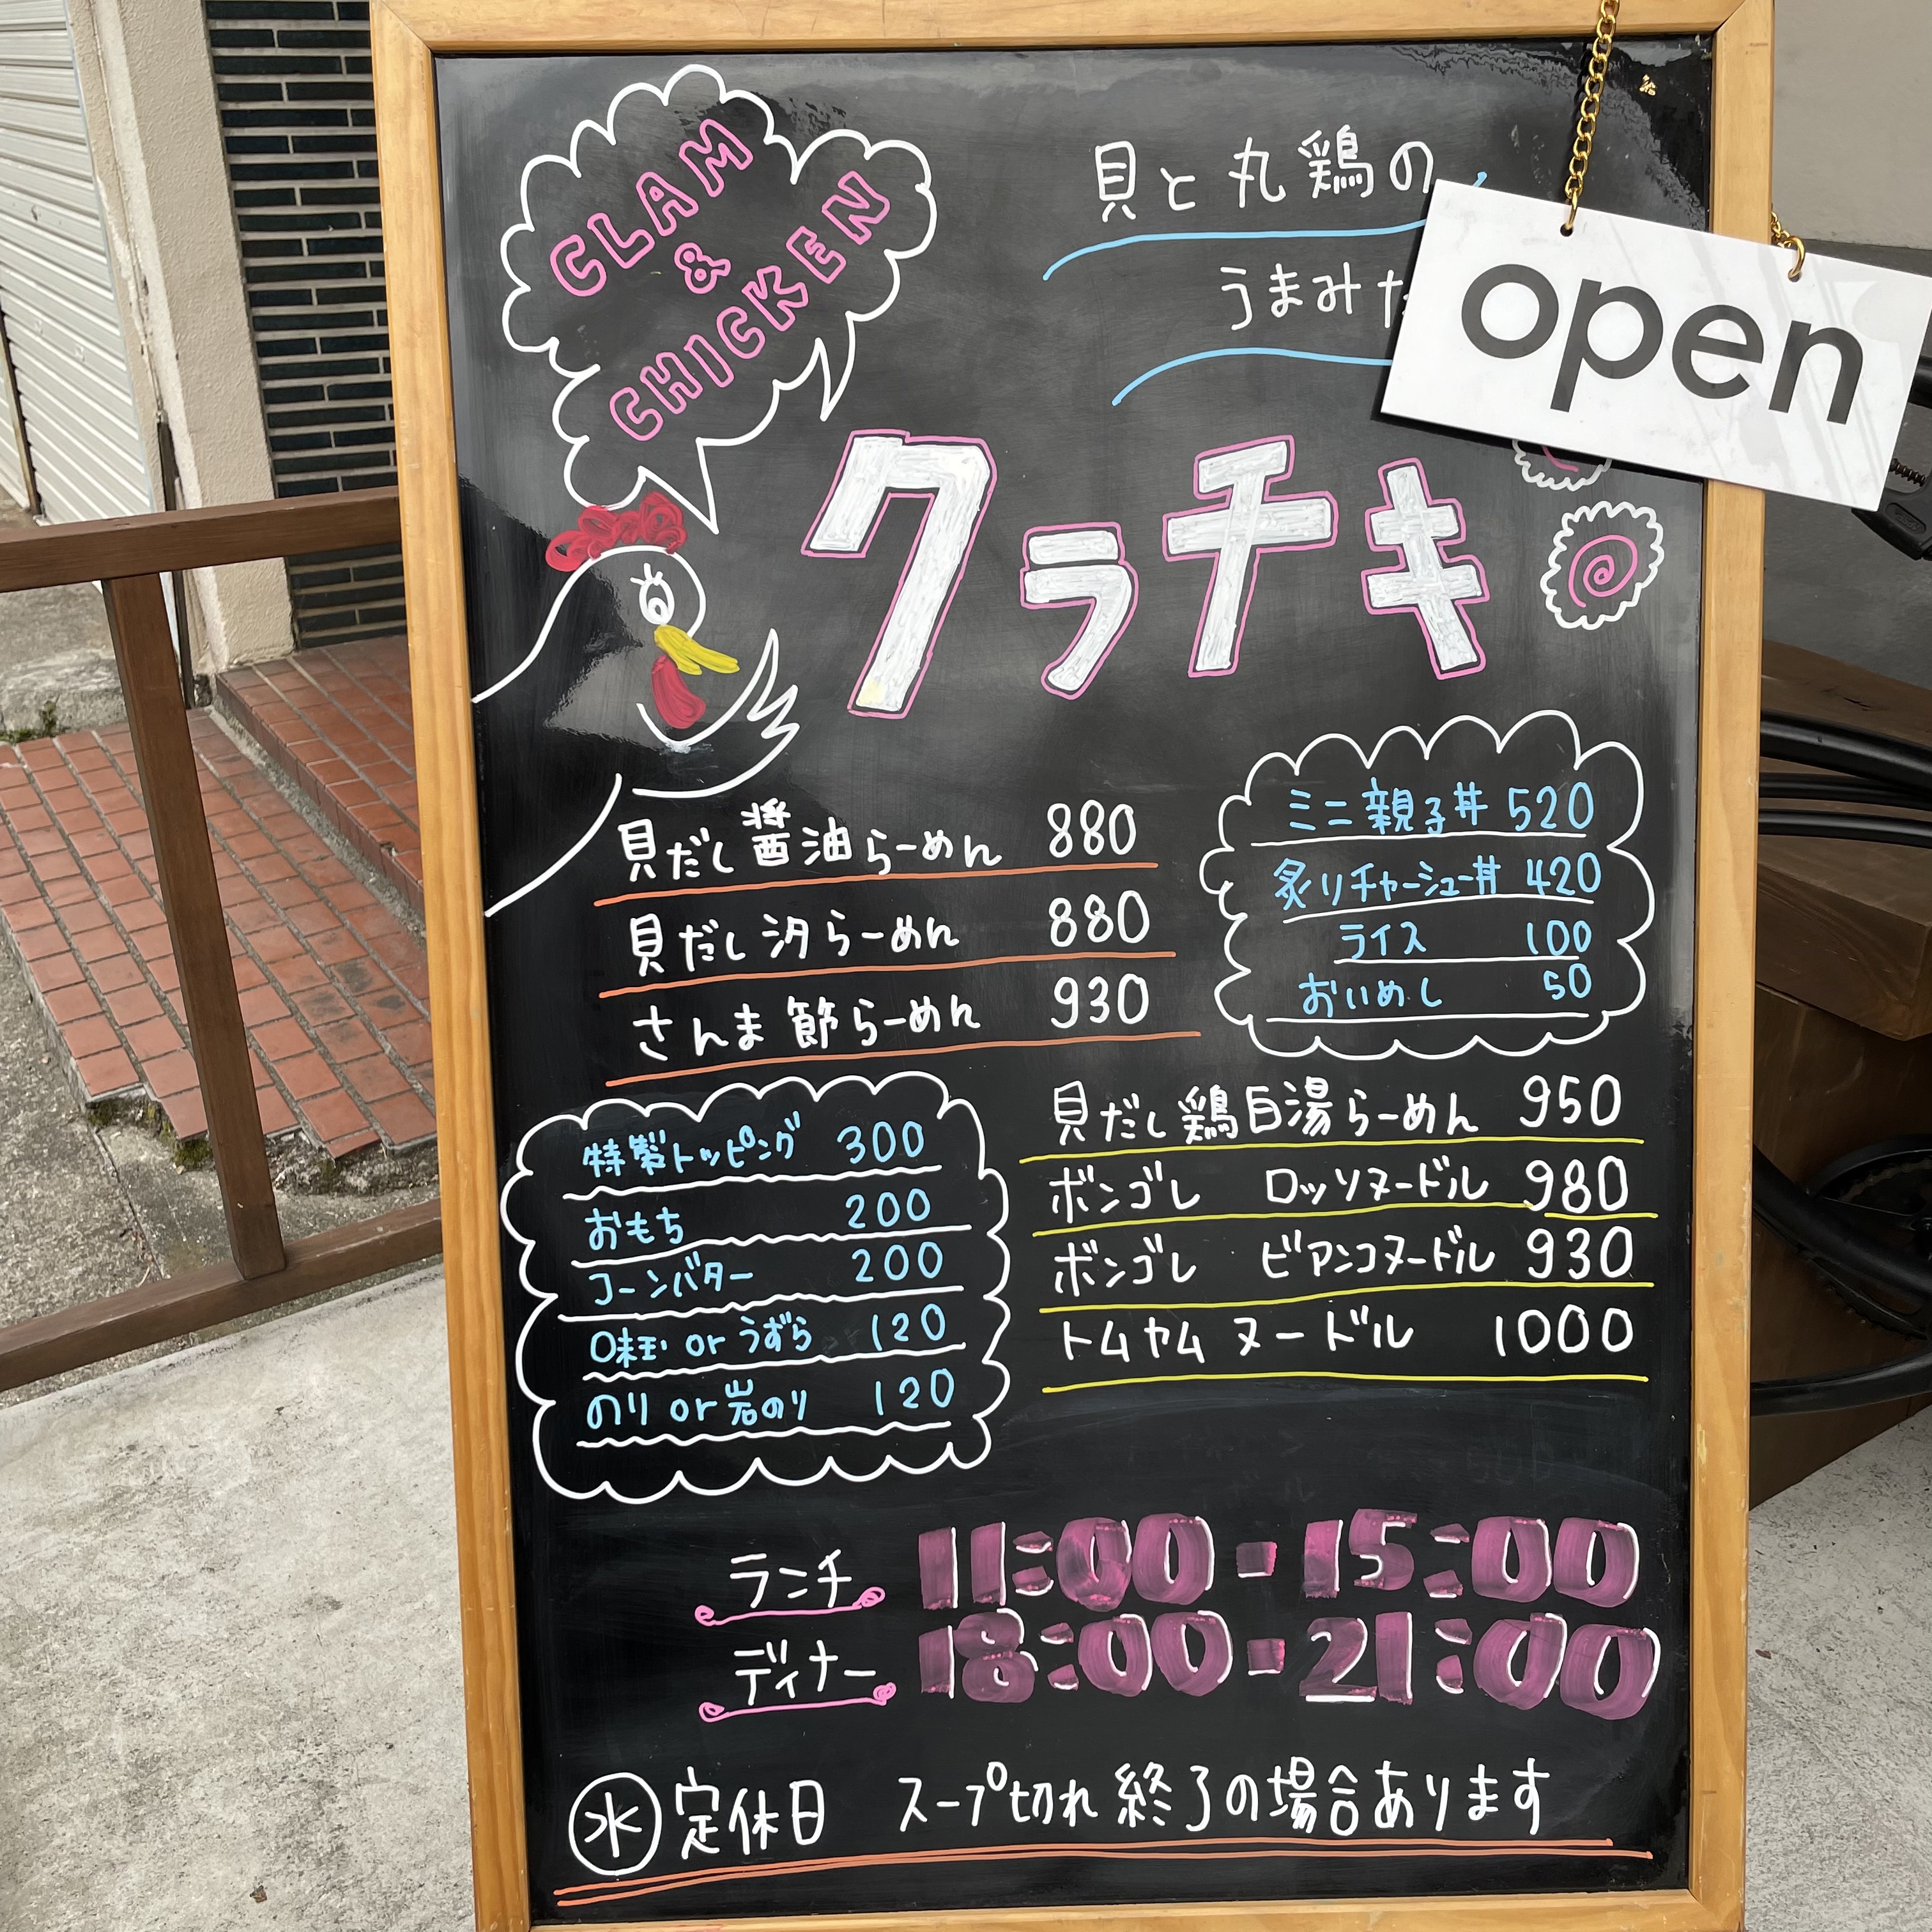 CLAM
&
CHICKEN
貝と丸鶏の
うまみ
open
クラチキ
貝だし醤油らーめん 880
貝だし汐らーめん 880
さんま節らーめん 930
ミニ親子丼 520
炙りチャーシュー丼 420
ライス 100
おいめし 50
特製トッピング 300
おもち 200
コーンバター 200
味玉 or うずら 120
のり or 岩のり 120
貝だし鶏白湯らーめん 950
ボンゴレ ロッソヌードル 980
ボンゴレ ビアンコヌードル 930
トムヤムヌードル 1000
ランチ 11:00-15:00
ディナー 18:00-21:00
水 定休日 スープ切れ終了の場合あります